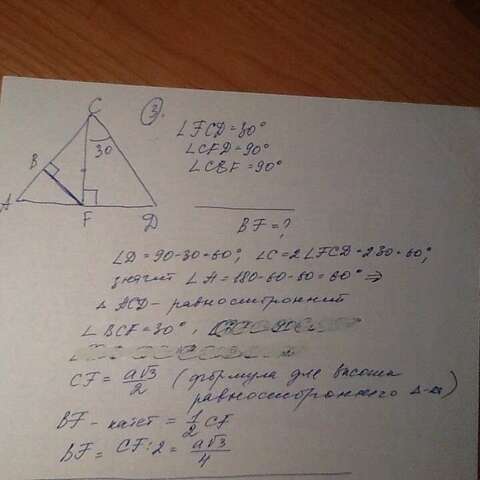 C
3.
30
B
A
F
D
∠FCD=30°
∠CFD=90°
∠CBF=90°
BF=?
∠D=90-30=60°, ∠C=2∠FCD=2·30=60°;
значит ∠A=180-60-60=60° ⇒
△ACD- равносторонний
∠BCF=30°,
CF= a√3/2 (формула для высоты
равностороннего Δ-ка)
BF- катет = 1/2 CF
BF= CF:2= a√3/4